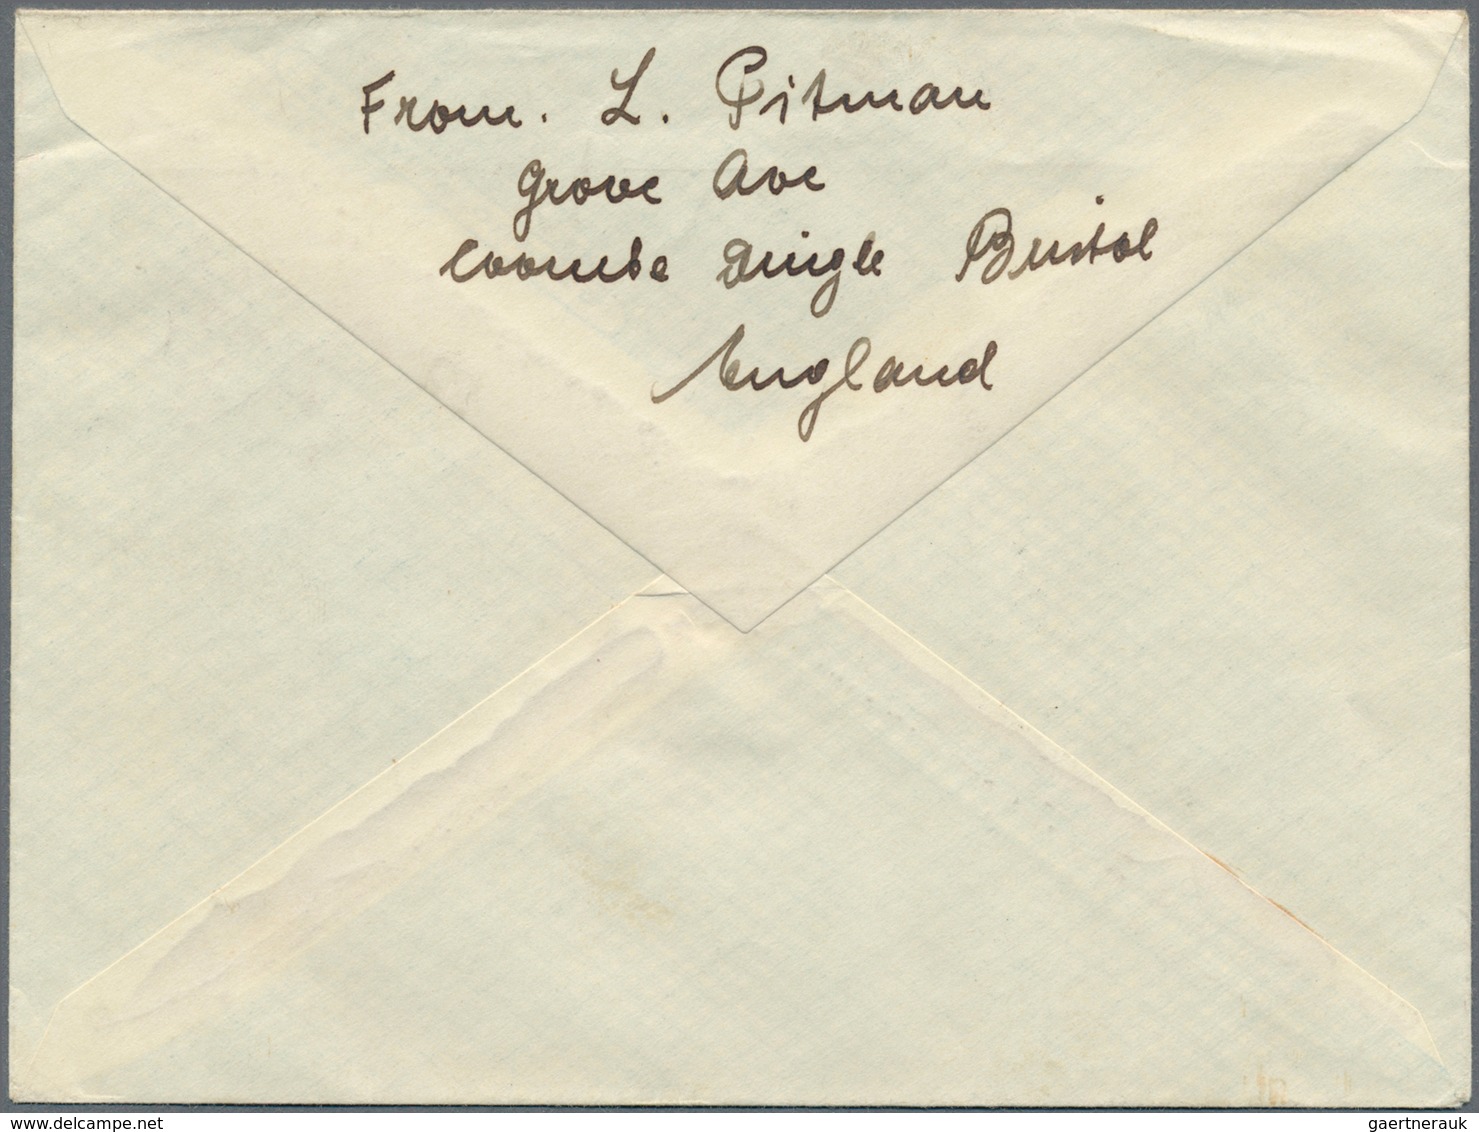 From. L. Pitman
Grove Ave
Coombe Dingle Bristol
England
delcampe.net
gaertnerauk